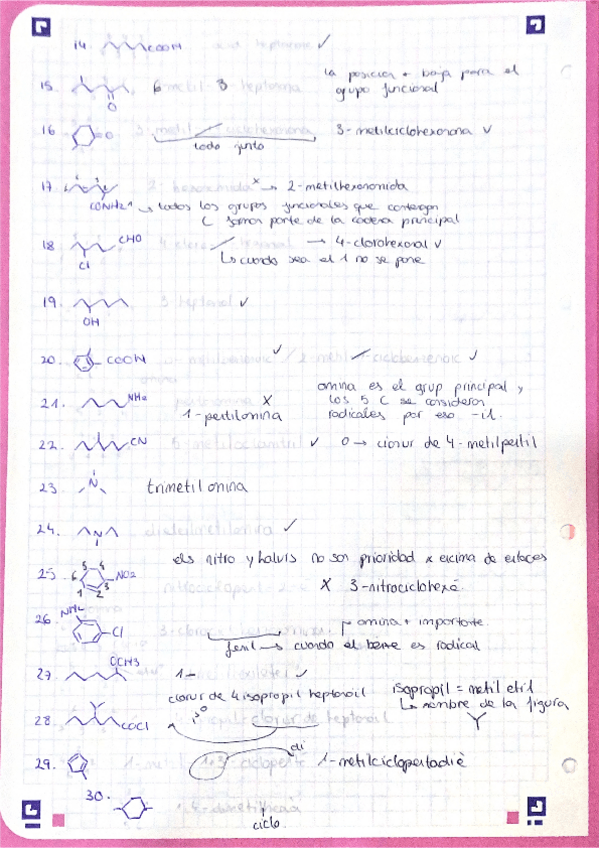 14. COOH àcid heptanoic ✓
15. O 6-metil-3-heptanona la posición + baja para el
grupo funcional
16 =O 3-metil ciclohexanona 3-metilciclohexanona ✓
todo junto
17. CONH2 2-hexanamida x → 2-metilhexanamida
todos los grupos funcionales que contengan
C forman parte de la cadena principal
18 CHO Cl 4-cloro hexanal → 4-clorohexanal ✓
↳ cuando sea el 1 no se pone
19. OH 3-heptanol ✓
20. COOH ✓ / 2-metil ✓
21. NH2 x amina es el grup principal y
1-pentilamina los 5 C se consideran
radicales por eso -il.
22. CN 5-metiloctanitril ✓ o → cianur de 4-metilpentil
23 N trimetilamina
24. N dietilmetilamina ✓
25 6 5 4 3 2 1 NO2 els nitro y halurs no son prioridad x encima de enlaces
X 3-nitrociclohexé
26 NH2 Cl 3-cloro amina + importante.
fenil → cuando el benze es radical
27. OCH3 1- ✓
clorur de 4 isopropil heptanoil isopropil = metil etil
↳ nombre de la figura
28. COCl clorur de heptanoil
29. 1-metil 1,3-ciclopenté di 1-metilciclopentadiè
30. 1,4-dimetilhexà
ciclo